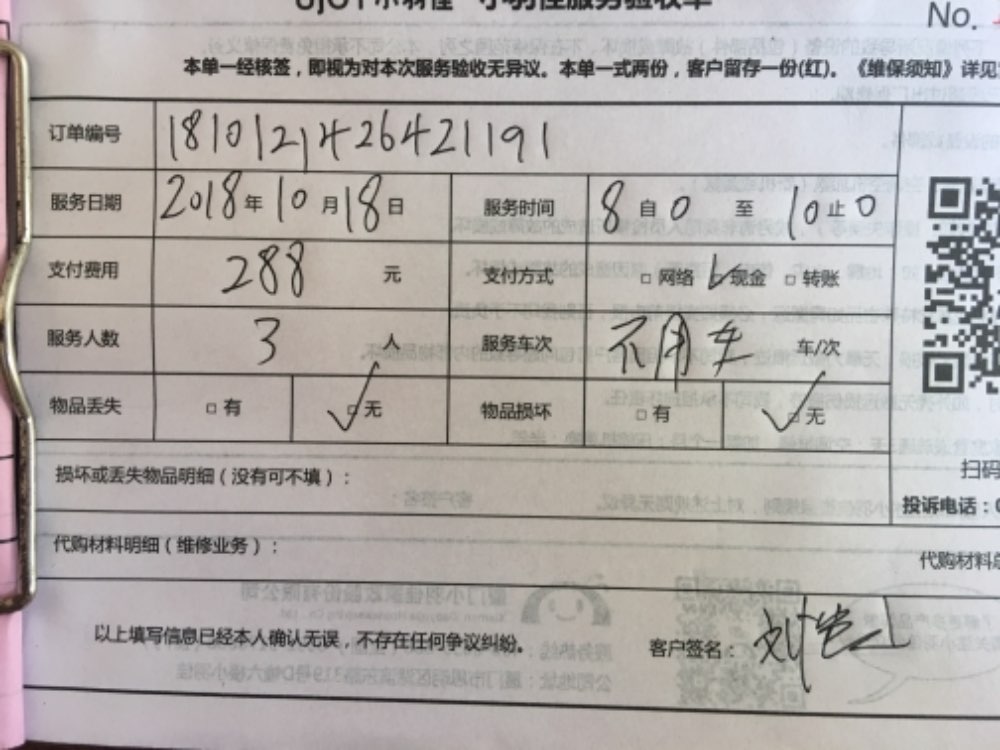 UJOY小羽佳 小羽佳服务验收单
No.
本单一经核签，即视为对本次服务验收无异议。本单一式两份，客户留存一份(红)。《维保须知》详见
订单编号 1810121426421191
服务日期 2018年10月18日 服务时间 8自0至10止0
支付费用 288元 支付方式 □网络 ☑现金 □转账
服务人数 3人 服务车次 不用车 车/次
物品丢失 □有 ☑无 物品损坏 □有 ☑无
损坏或丢失物品明细（没有可不填）：
扫码
投诉电话：
代购材料明细（维修业务）：
代购材料总
以上填写信息已经本人确认无误，不存在任何争议纠纷。 客户签名：